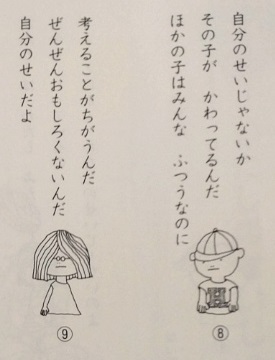 自分のせいじゃないか
その子が　かわってるんだ
ほかの子はみんな　ふつうなのに
⑧
考えることがちがうんだ
ぜんぜんおもしろくないんだ
自分のせいだよ
⑨